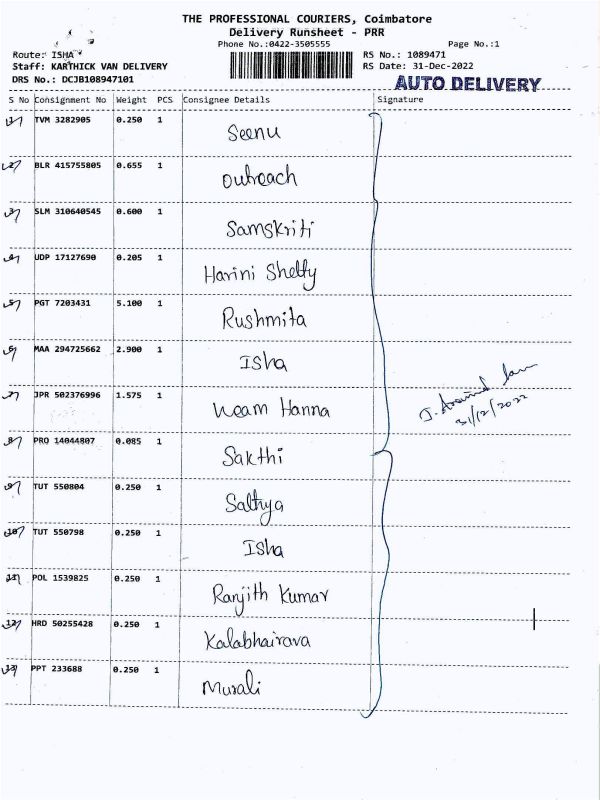 THE PROFESSIONAL COURIERS, Coimbatore
Delivery Runsheet - PRR
Phone No.:0422-3505555 Page No.:1
Route: ISHA RS No.: 1089471
Staff: KARTHICK VAN DELIVERY RS Date: 31-Dec-2022
DRS No.: DCJB108947101 AUTO DELIVERY
S No Consignment No Weight PCS Consignee Details Signature
1 TVM 3282905 0.250 1 Seenu
2 BLR 415755805 0.655 1 Outreach
3 SLM 310640545 0.600 1 Samskriti
4 UDP 17127690 0.205 1 Harini Shetty
5 PGT 7203431 5.100 1 Rushmita
6 MAA 294725662 2.900 1 Isha
7 JPR 502376996 1.575 1 Weam Hanna
31/12/2022
8 PRO 14044807 0.085 1 Sakthi
9 TUT 550804 0.250 1 Sathya
10 TUT 550798 0.250 1 Isha
11 POL 1539825 0.250 1 Ranjith Kumar
12 HRD 50255428 0.250 1 Kalabhairava
13 PPT 233688 0.250 1 Murali